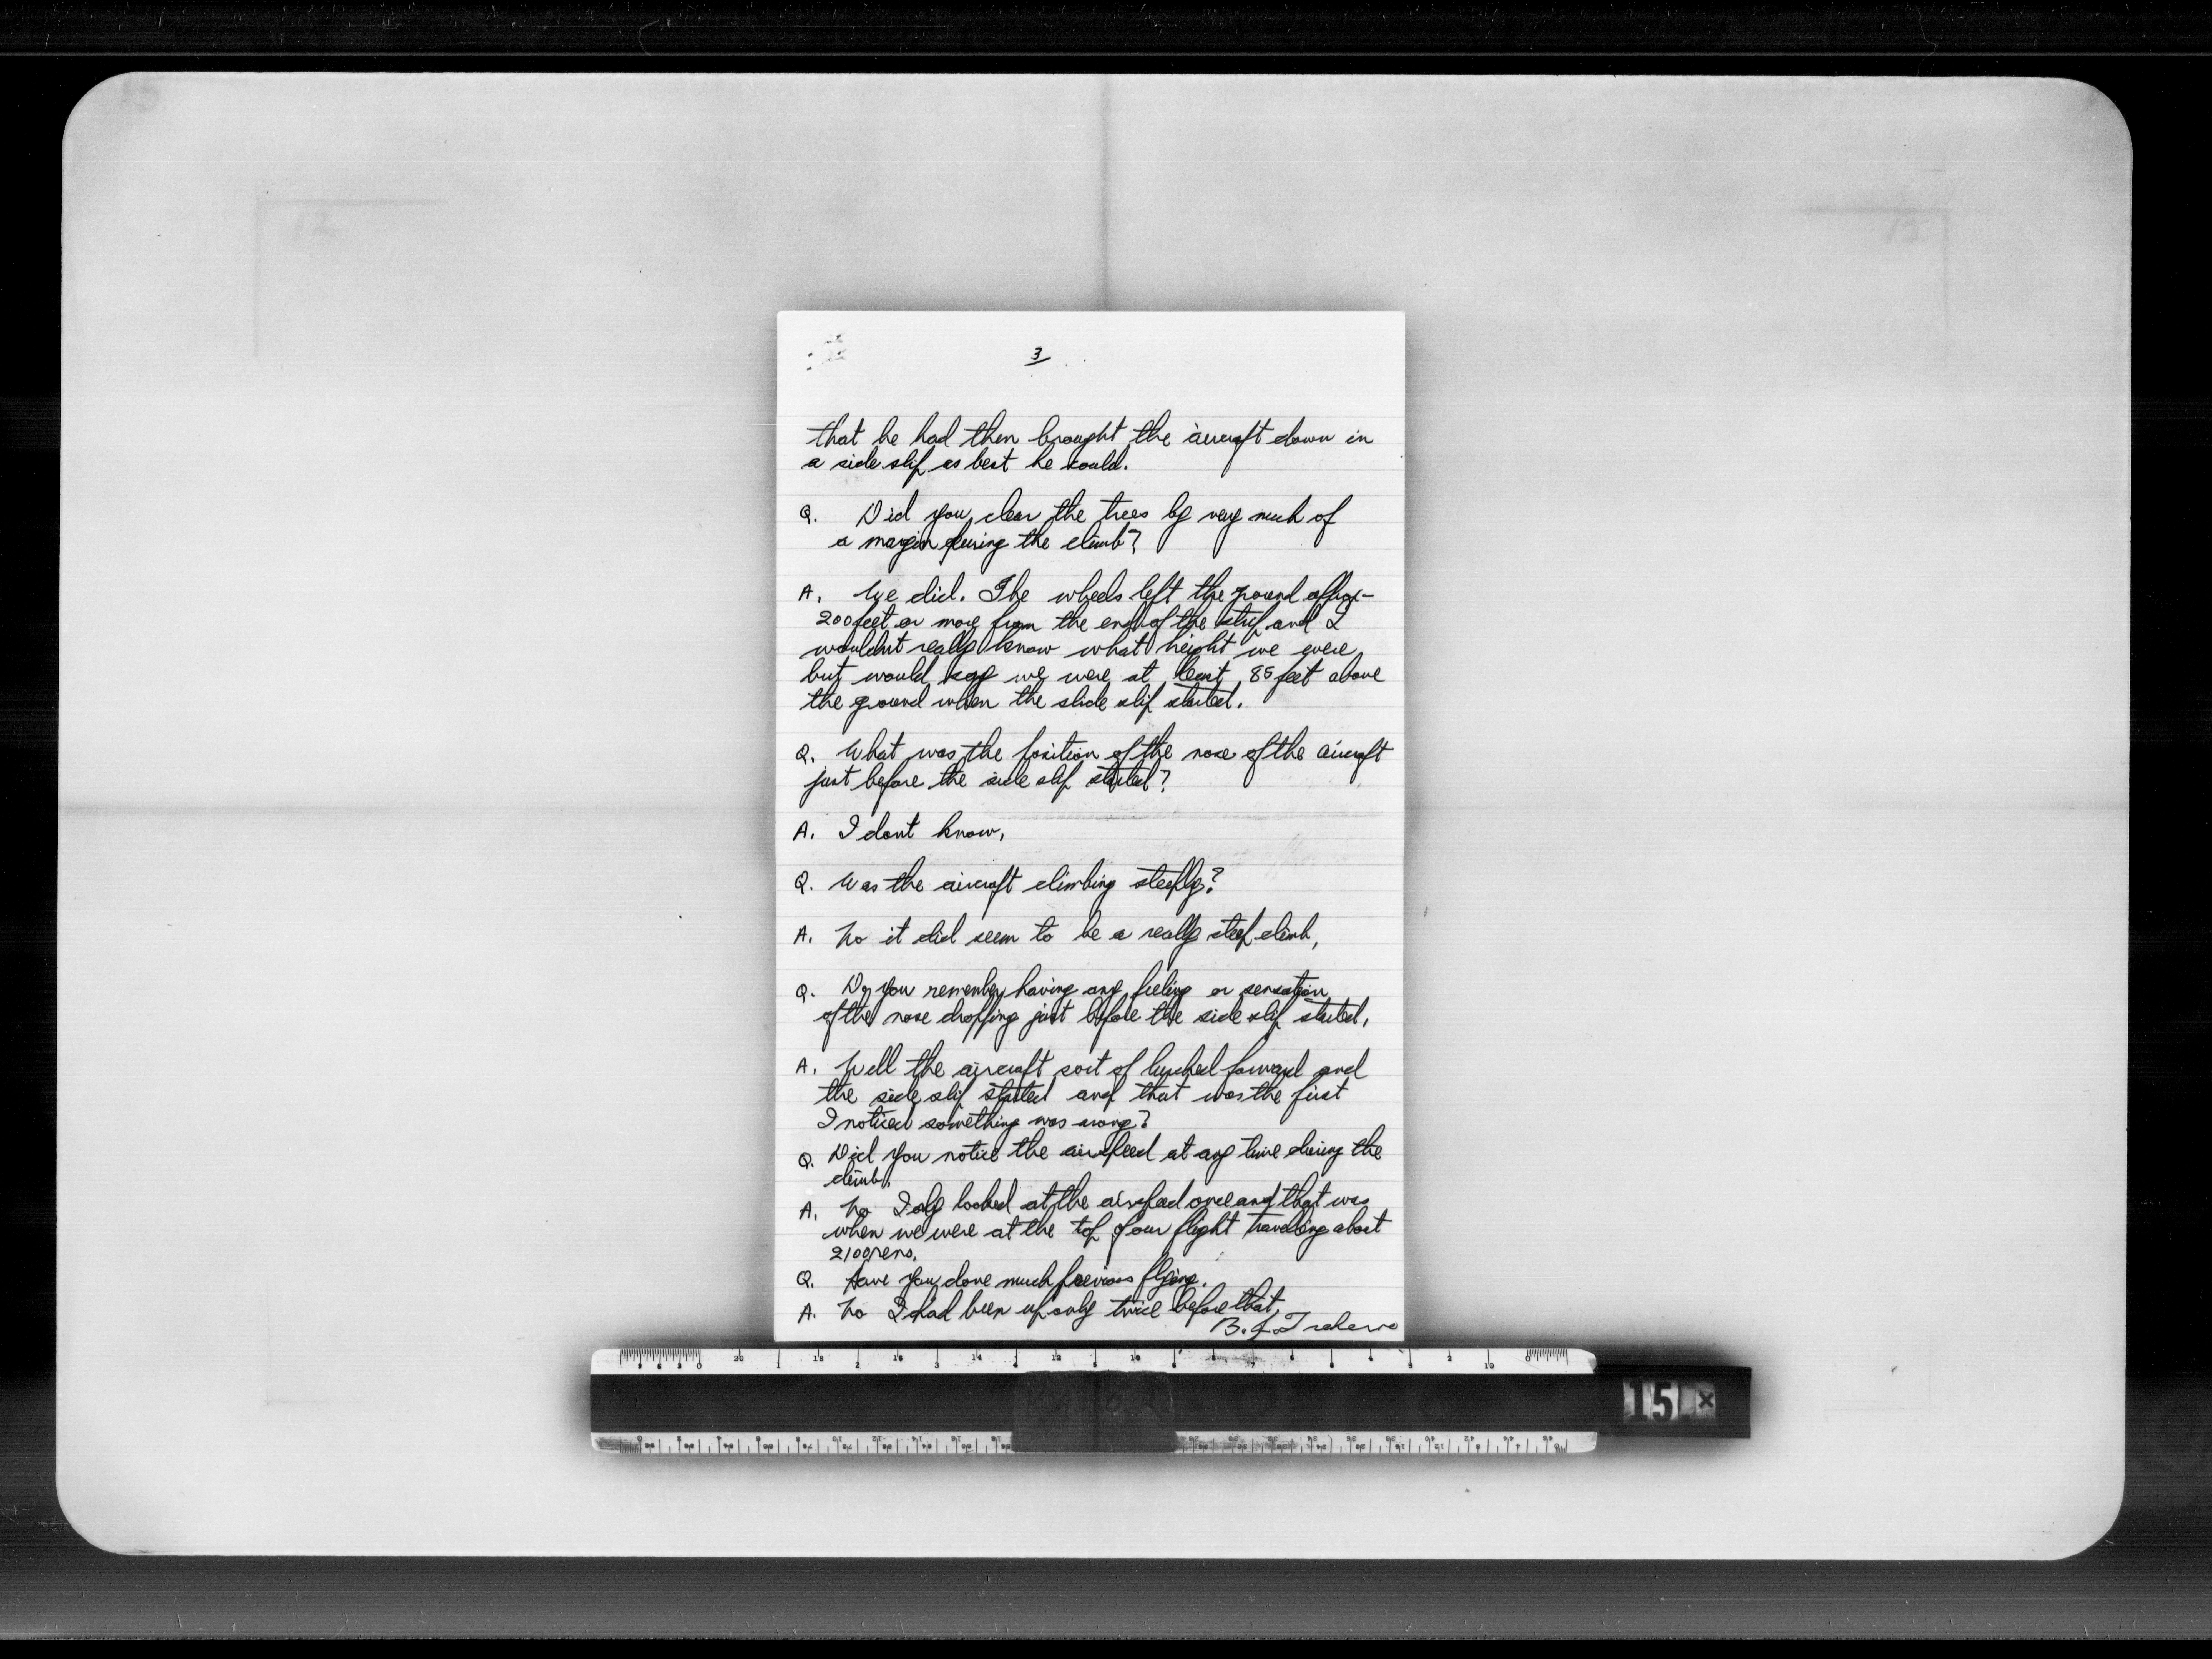 3
that he had then brought the aircraft down in
a side slip as best he could.
Q. Did you clear the trees by very much of
a margin during the climb?
A. We did. The wheels left the ground approx-
200 feet or more from the end of the strip and I
wouldnt really know what height we were
but would say we were at least 85 feet above
the ground when the slide slip started.
Q. What was the position of the nose of the aircraft
just before the side slip started?
A. I dont know.
Q. Was the aircraft climbing steeply?
A. No it did seem to be a really steep climb,
Q. Do you remember having any feeling or sensation
of the nose dropping just before the side slip started,
A. Well the aircraft sort of lurched forward and
the side slip started and that was the first
I noticed something was wrong?
Q. Did you notice the airspeed at any time during the
climb.
A. No I only looked at the airspeed once and that was
when we were at the top of our flight travelling about
2100
Q. Have you done much previous flying.
A. No I had been up only twice before that.
B.
15